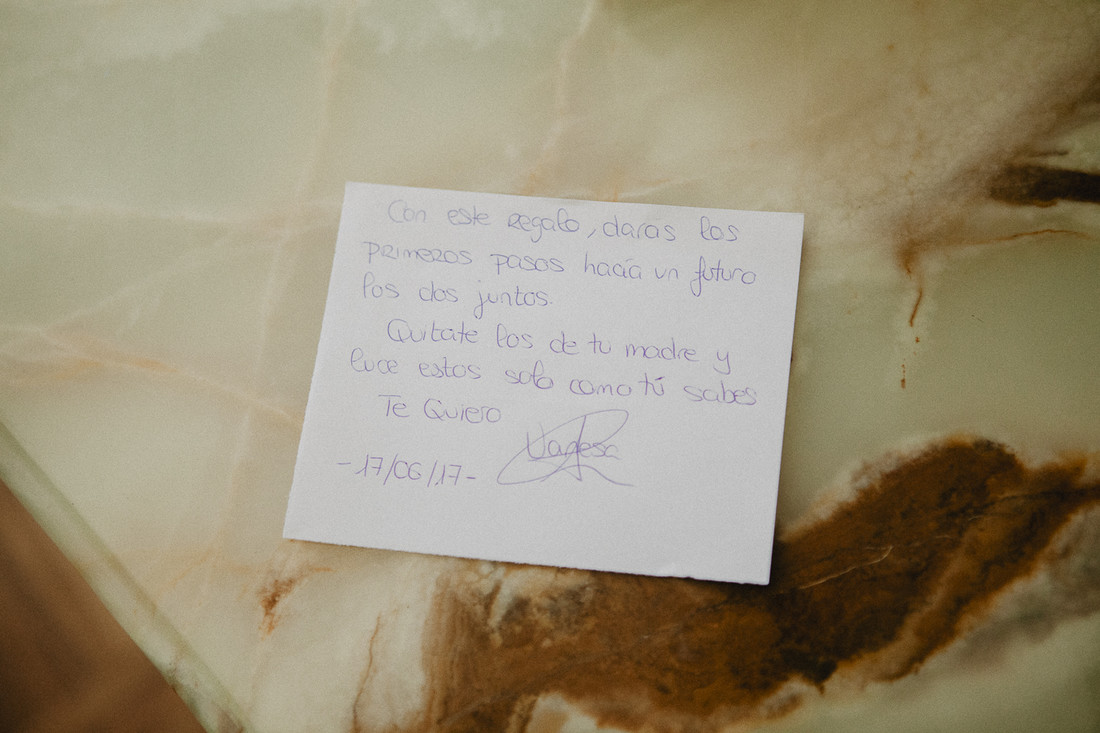 Con este Regalo, darás los
primeros pasos hacía un futuro
los dos juntos.
Quitate los de tu madre y
luce estos solo como tú sabes
Te Quiero
Vanesa
-17/06/17-